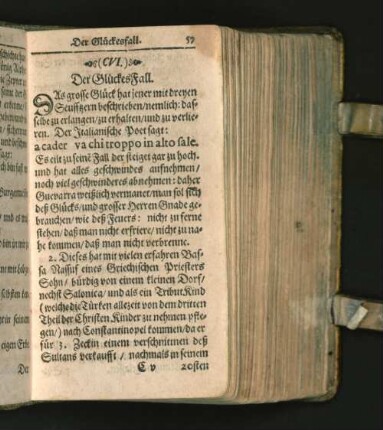 Der Glückesfall. 57
(CVI.)
Der GlückesFall.
DAs grosse Glück hat jener mit dreyen
Seufftzern beschrieben/nemlich: das-
selbe zu erlangen/zu erhalten/und zu verlie-
ren. Der Italianische Poet sagt:
a cader va chi troppo in alto sale.
Es eilt zu seinē Fall der steiget gar zu hoch.
und hat alles geschwindes aufnehmen/
noch viel geschwinderes abnehmen: daher
Guevarra weißlich vermanet/man sol sich
deß Glücks/und grosser Herren Gnade ge-
brauchen/wie deß Feuers: nicht zu ferne
stehen/daß man nicht erfriere/nicht zu na-
he kommen/daß man nicht verbrenne.
2. Dieses hat mit vielen erfahren Bas-
sa Nassuf eines Griechischen Priesters
Sohn/ bürdig von einem kleinen Dorf/
nechst Salonica/und als ein TributKind
(welche die Türken allezeit von dem dritten
Theil der Christen Kinder zu nehmen pfle-
gen/) nach Constantinopel kommen/da er
für 3. Zeckin einem verschnittnen deß
Sultans verkaufft/ nachmals in seinem
C v 20sten